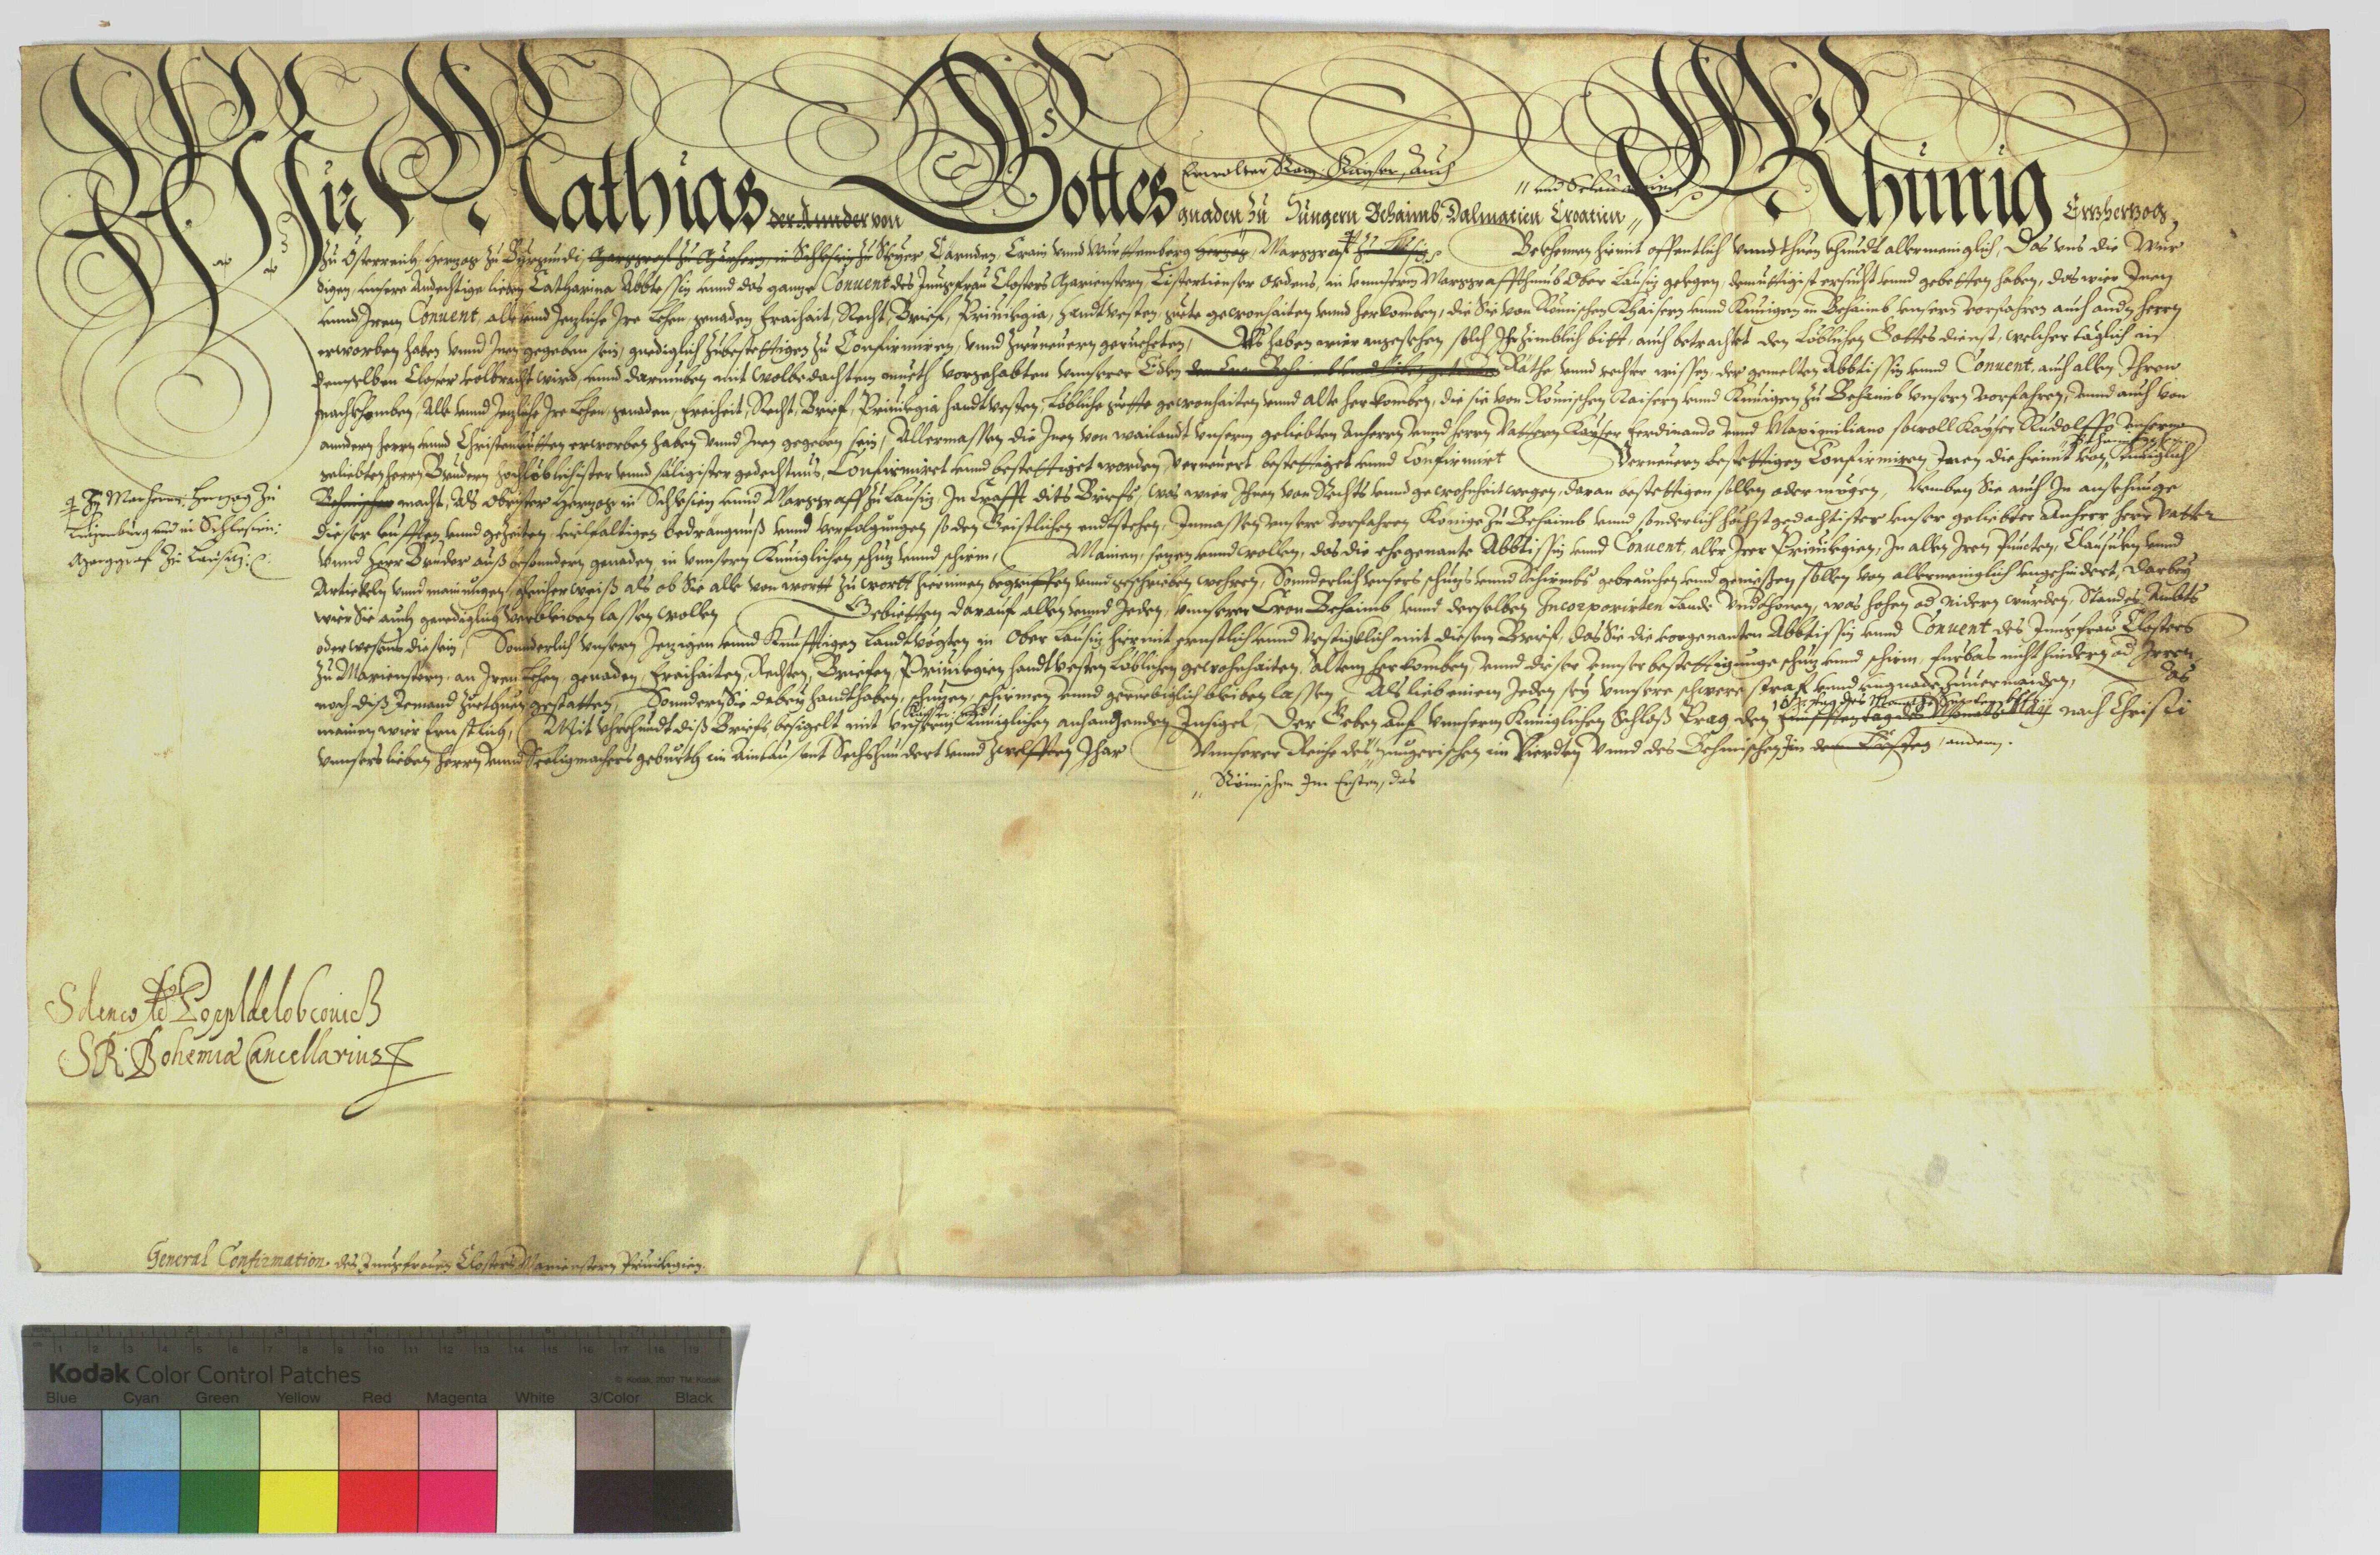 Wir Mathias der Annder von Gottes gnaden zu Hungern Behaimb Dalmatien Croatien Khünig Ertzhertzog
Erwolter Röm. Kaiser, auch
und Sclauonien
zu Österreich, Hertzog zu Burgundi, Marggraf zu Märhern, in Schlesien zu Steyer Cärnden, Crain unnd Wirttemberg Hertzog, Marggraf zu Lausitz. Bekhennen hiemit offentlich unnd thuen khundt allermeniglich, Das uns die Wür
digen, unsere Andechtige lieben Catharina Abbtessin unnd das gantze Conuent des Junckfrau Closters Marienstern, Cistertienser Ordens, in unnserm Marggraffthumb Ober Lausitz gelegen, demuttigist ersucht unnd gebetten haben, das wier Inen
unnd Irem Conuent, alle unnd Jegliche Ire Lehen, genaden Freihait, Recht, Brieff, Priuilegia, Handtvesten, guete gewonhaiten unnd herkomben, die Sie von Römischen Khaisern unnd Künigen in Behaimb unsern vorfahren auch andern herrn
erworben haben unnd Inen gegeben sein, gnediglich zubestettigen zu Confirmiren, unnd zuuerneuern geruheten, Des haben wier angesehen solch Ihr zimblich bitt, auch betrachtet den Löblichen Gottesdienst, welcher täglich in
demselben Closter volbracht wird, unnd darumben mit wolbedachtem mueth vorgehabten unnserer Edlen Räthe unnd rechter wissen, der gemelten Abbtissin unnd Conuent, auch allen Ihren
nachkhomben, Alle unnd Jegliche Ire Lehen, genaden, Freiheit, Recht, Brief, Priuilegia Handtvesten, Löbliche guette gewonhaiten unnd alte herkomben, die sie von Römischen Kaisern unnd Künigen zu Behaimb unsern vorfahren, unnd auch von
anndern herrn unnd Christenleutten erworben haben unnd Inen gegeben sein, Allermassen die Inen von weilandt unserm geliebten Anherrn unnd Herrn Vattern Kayser Ferdinando unnd Maximiliano sowoll Kayser Rudolffo unserm
geliebten herrn Brudern hochlöblichister unnd säligister gedechtnus, Confirmiret unnd bestettiget worden, verneuert bestettiget unnd Confirmirt Verneuern bestettigen Confirmiren Inen die hiemit von Küniglich
Behmischer macht, Als Obrister Hertzog in Schlesien unnd Marggraff zu Lausitz In Crafft dits Briefs, was wier Ihnen von Rechts unnd gewohnheit wegen, daran bestettigen sollen oder mügen, Nemben Sie auch In ansehunge
zu Marhern: Hertzog zu
Lützenburg und in Schlesien:
Marggraf zu Lausitz: etc.
dieser leufften unnd gezeiten, vielfaltigen bedrängnuß unnd verfolgungen so den Geistlichen endtstehen, Inmassen unsere Vorfahren Könige zu Behaimb unnd sonderlich höchstgedachtister unser geliebter Anherr Herr Vatter
unnd Herr Bruder auß besondern genaden, in unnsern Küniglichen schutz unnd schirm, Mainen, setzen unnd wollen, das die ehegenante Abbtissin unnd Conuent, aller Irer Priuilegien, In allen Iren Puncten, Clausulen unnd
Artickeln unnd mainungen gleicherweiß als ob Sie alle von wortt zu wortt hierinnen begriffen unnd geschrieben wehren, Sonderlich unsers schutz unnd schirmbs gebrauchen unnd geniessen sollen von allermeniglich ungehindert, Darbey
wier Sie auch genediglich verbleiben lassen wollen Gebietten darauf allen unnd Jeden, unnserer Cron Behaimb unnd derselben Incorporirten Lande Underthanen, was hohen od nidern wurden, Standes Ambts
oder wesens die sein, Sonderlich unsern Jetzigen unnd Künfftigen Landtvögten in Ober Lausitz hiermit ernstlich unnd vestigklich mit diesem Brief, das Sie die vorgenanten Abbtissin unnd Conuent des Junckfrau Closters
zu Marienstern, an Iren Lehen, genaden, Freihaiten, Rechten, Brieffen, Priuilegien Handtvesten Löblichen gewohnhaiten, altem herkomben, unnd dieser unnser bestettigunge schutz unnd schirm, furbas nicht hindern od Irren,
noch diß Jemand zuethuen gestatten, Sondern Sie dabey handthaben, schützen, schirmen unnd geruhiglich bleiben lassen, Als lieb einem Jeden sey unnsere schwere straf unnd ungnade zuuermaiden, Das
mainen wier Ernstlich, Mit uhrkhundt diß Briefs, besigelt mit unserm Küniglichen anhangenden Insigel, Der Geben auf unnserm Küniglichen Schloß Prag den Fünfften tag des Monats nach Christi
unnsers lieben Herrn unnd Seeligmachers geburth im Aintausent Sechshundert unnd zwelfften Jhar Unnserer Reiche des Hungerischen im Vierdten unnd des Behmischen im dem Ersten, andern.
Römischen Im Ersten, des
Sdenco Ad Poppl de Lobcouicz
S R: Bohemiæ Cancellarius
General Confirmation des Junckfrauen Closters Marienstern Priuilegien.
Kodak Color Control Patches
© Kodak, 2007 TM: Kodak
Blue Cyan Green Yellow Red Magenta White 3/Color Black